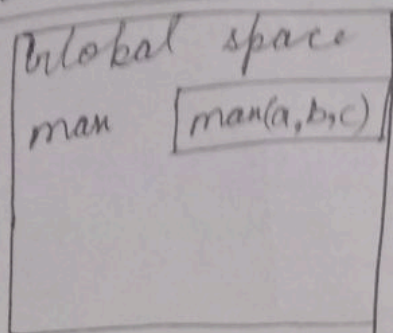 Global space
man man(a,b,c)